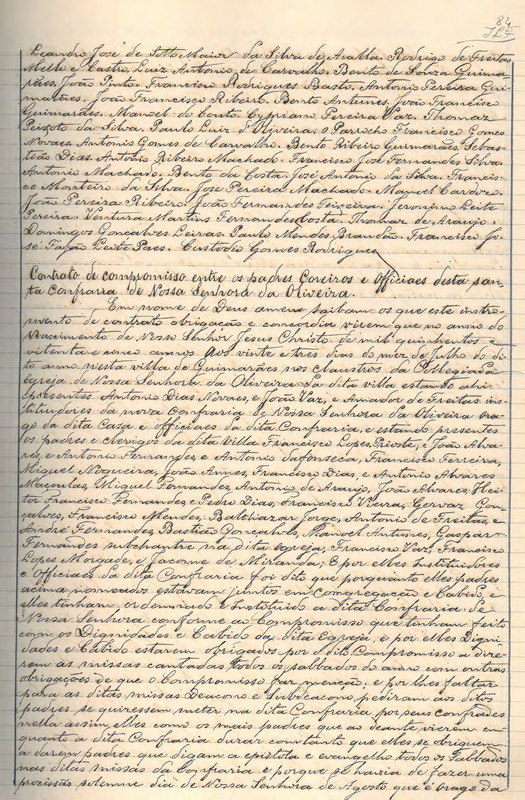 84
Leandro José de Sotto Maior da Silva de Avalla. Rodrigo de Freitas
Mello e Castro. Luiz Antonio de Carvalho. Bento de Souza Guima-
rães. João Pinto. Francisco Rodrigues Basto. Antonio Pereira Gui-
marães. João Francisco Ribeiro. Bento Antunes. João Francisco
Guimarães. Manoel do Couto. Cypriano Pereira Vaz. Thomaz
Peixoto da Silva. Paulo Luiz d'Oliveira, o Parrocho Francisco Gomes
Novaes. Antonio Gomes de Carvalho. Bento Ribeiro Guimarães. Sebas-
tião Dias. Antonio Ribeiro Machado. Francisco José Fernandes Silva.
Antonio Machado. Bento da Costa. José Antonio da Silva. Francis-
co Monteiro da Silva. José Pereira Machado. Manoel Cardozo.
João Pereira Ribeiro. João Fernandes Teixeira. Jeronimo Leite
Pereira. Ventura Martins Fernandes Costa. Thomaz de Araujo.
Domingos Gonçalves Leiras. Paulo Mendes Brandão. Francisco Jo-
sé Leite Paes. Custodio Gomes Rodrigues
Contrato de compromisso entre os padres Coreiros e Officiaes desta san-
ta Confraria de Nossa Senhora da Oliveira.
Em nome de Deus amen saibam os que este instro-
mento de contrato obrigação e concordia virem que no anno do
Nascimento de Nosso Senhor Jesus Christo de mil quinhentos e
oitenta e cinco annos Aos vinte e tres dias do mez de Julho do di-
to anno nesta villa de Guimarães nos Claustros da Collegiada
Egreja de Nossa Senhora da Oliveira da dita villa estando ahi
presentes Antonio Dias Novaes, e João Vaz, e Amador de Freitas ins-
tituidores da nova Confraria de Nossa Senhora da Oliveira ora-
go da dita Casa e officiaes da dita Confraria, e estando presentes
os padres e clerigos da dita Villa Francisco Lopes, e João Alva-
res, e Antonio Fernandes, e Antonio da Fonseca, Francisco Ferreira,
Miguel Nogueira, João Annes, Francisco Dias, e Antonio Alvares
Miguel Fernandes, Antonio de Araujo, João Alvares, Hei-
tor Francisco Fernandes e Pedro Dias, Francisco Vieira, Gervaz Gon-
çalves, Francisco Mendes, Balthazar Jorge, Antonio de Freitas, e
André Fernandes, Bastião Gonçalves, Manoel Antunes, Gaspar
Fernandes subchantre na dita egreja, Francisco Vaz, Francisco
Lopes Morgade, e Jacome de Miranda; E por elles Instituidores
e Officiaes da dita Confraria foi dito que porquanto elles padres
acima nomeados estavam juntos em Congregação e Cabido, e
elles tinham ordenado e Instituido a dita Confraria de
Nossa Senhora conforme ao Compromisso que tinham feito
com os Dignidades e Cabido da dita Egreja, e por elles Digni-
dades e Cabido estarem obrigados por o dito Compromisso a dize-
rem as missas cantadas todos os sabbados do anno com outras
obrigações de que o Compromisso faz menção, e por lhes faltar
para as ditas missas Deacono e Subdeacono, pediram aos ditos
padres se quizessem meter na dita Confraria por seus confrades
nella assim elles como os mais padres que ao deante vierem em-
quanto a dita Confraria durar comtanto que elles se obriguem
a darem padres que digam a epistola e evangelho todos os Sabbados
nas ditas missas da Confraria e porque se havia de fazer uma
procissão solemne dia de Nossa Senhora de Agosto que é orago da